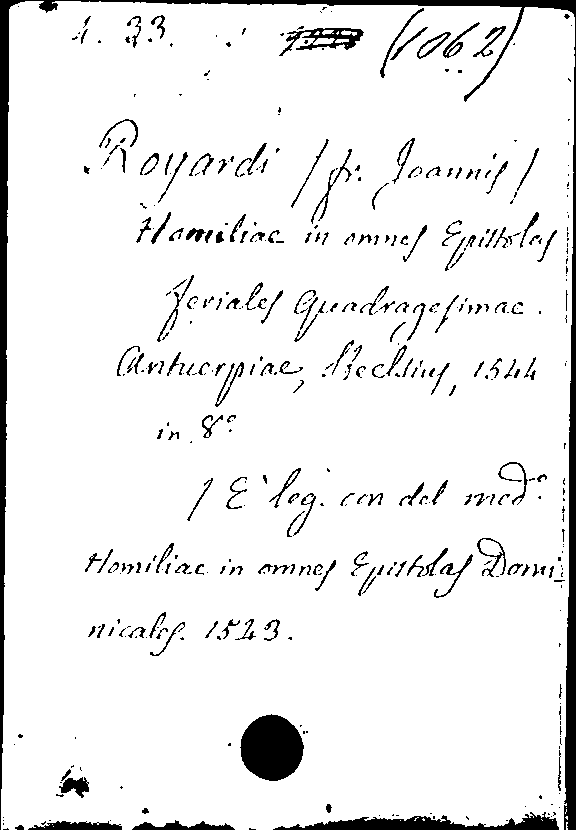 4. 33. (1062)
Royardi / fr. Joannis /
Homiliae in omnes Epistolas
feriales Quadragesimae.
Antuerpiae, Steelsius, 1544
in 8°
/ E' leg. con del med°.
Homiliae in omnes Epistolas Domi-
nicales. 1543.